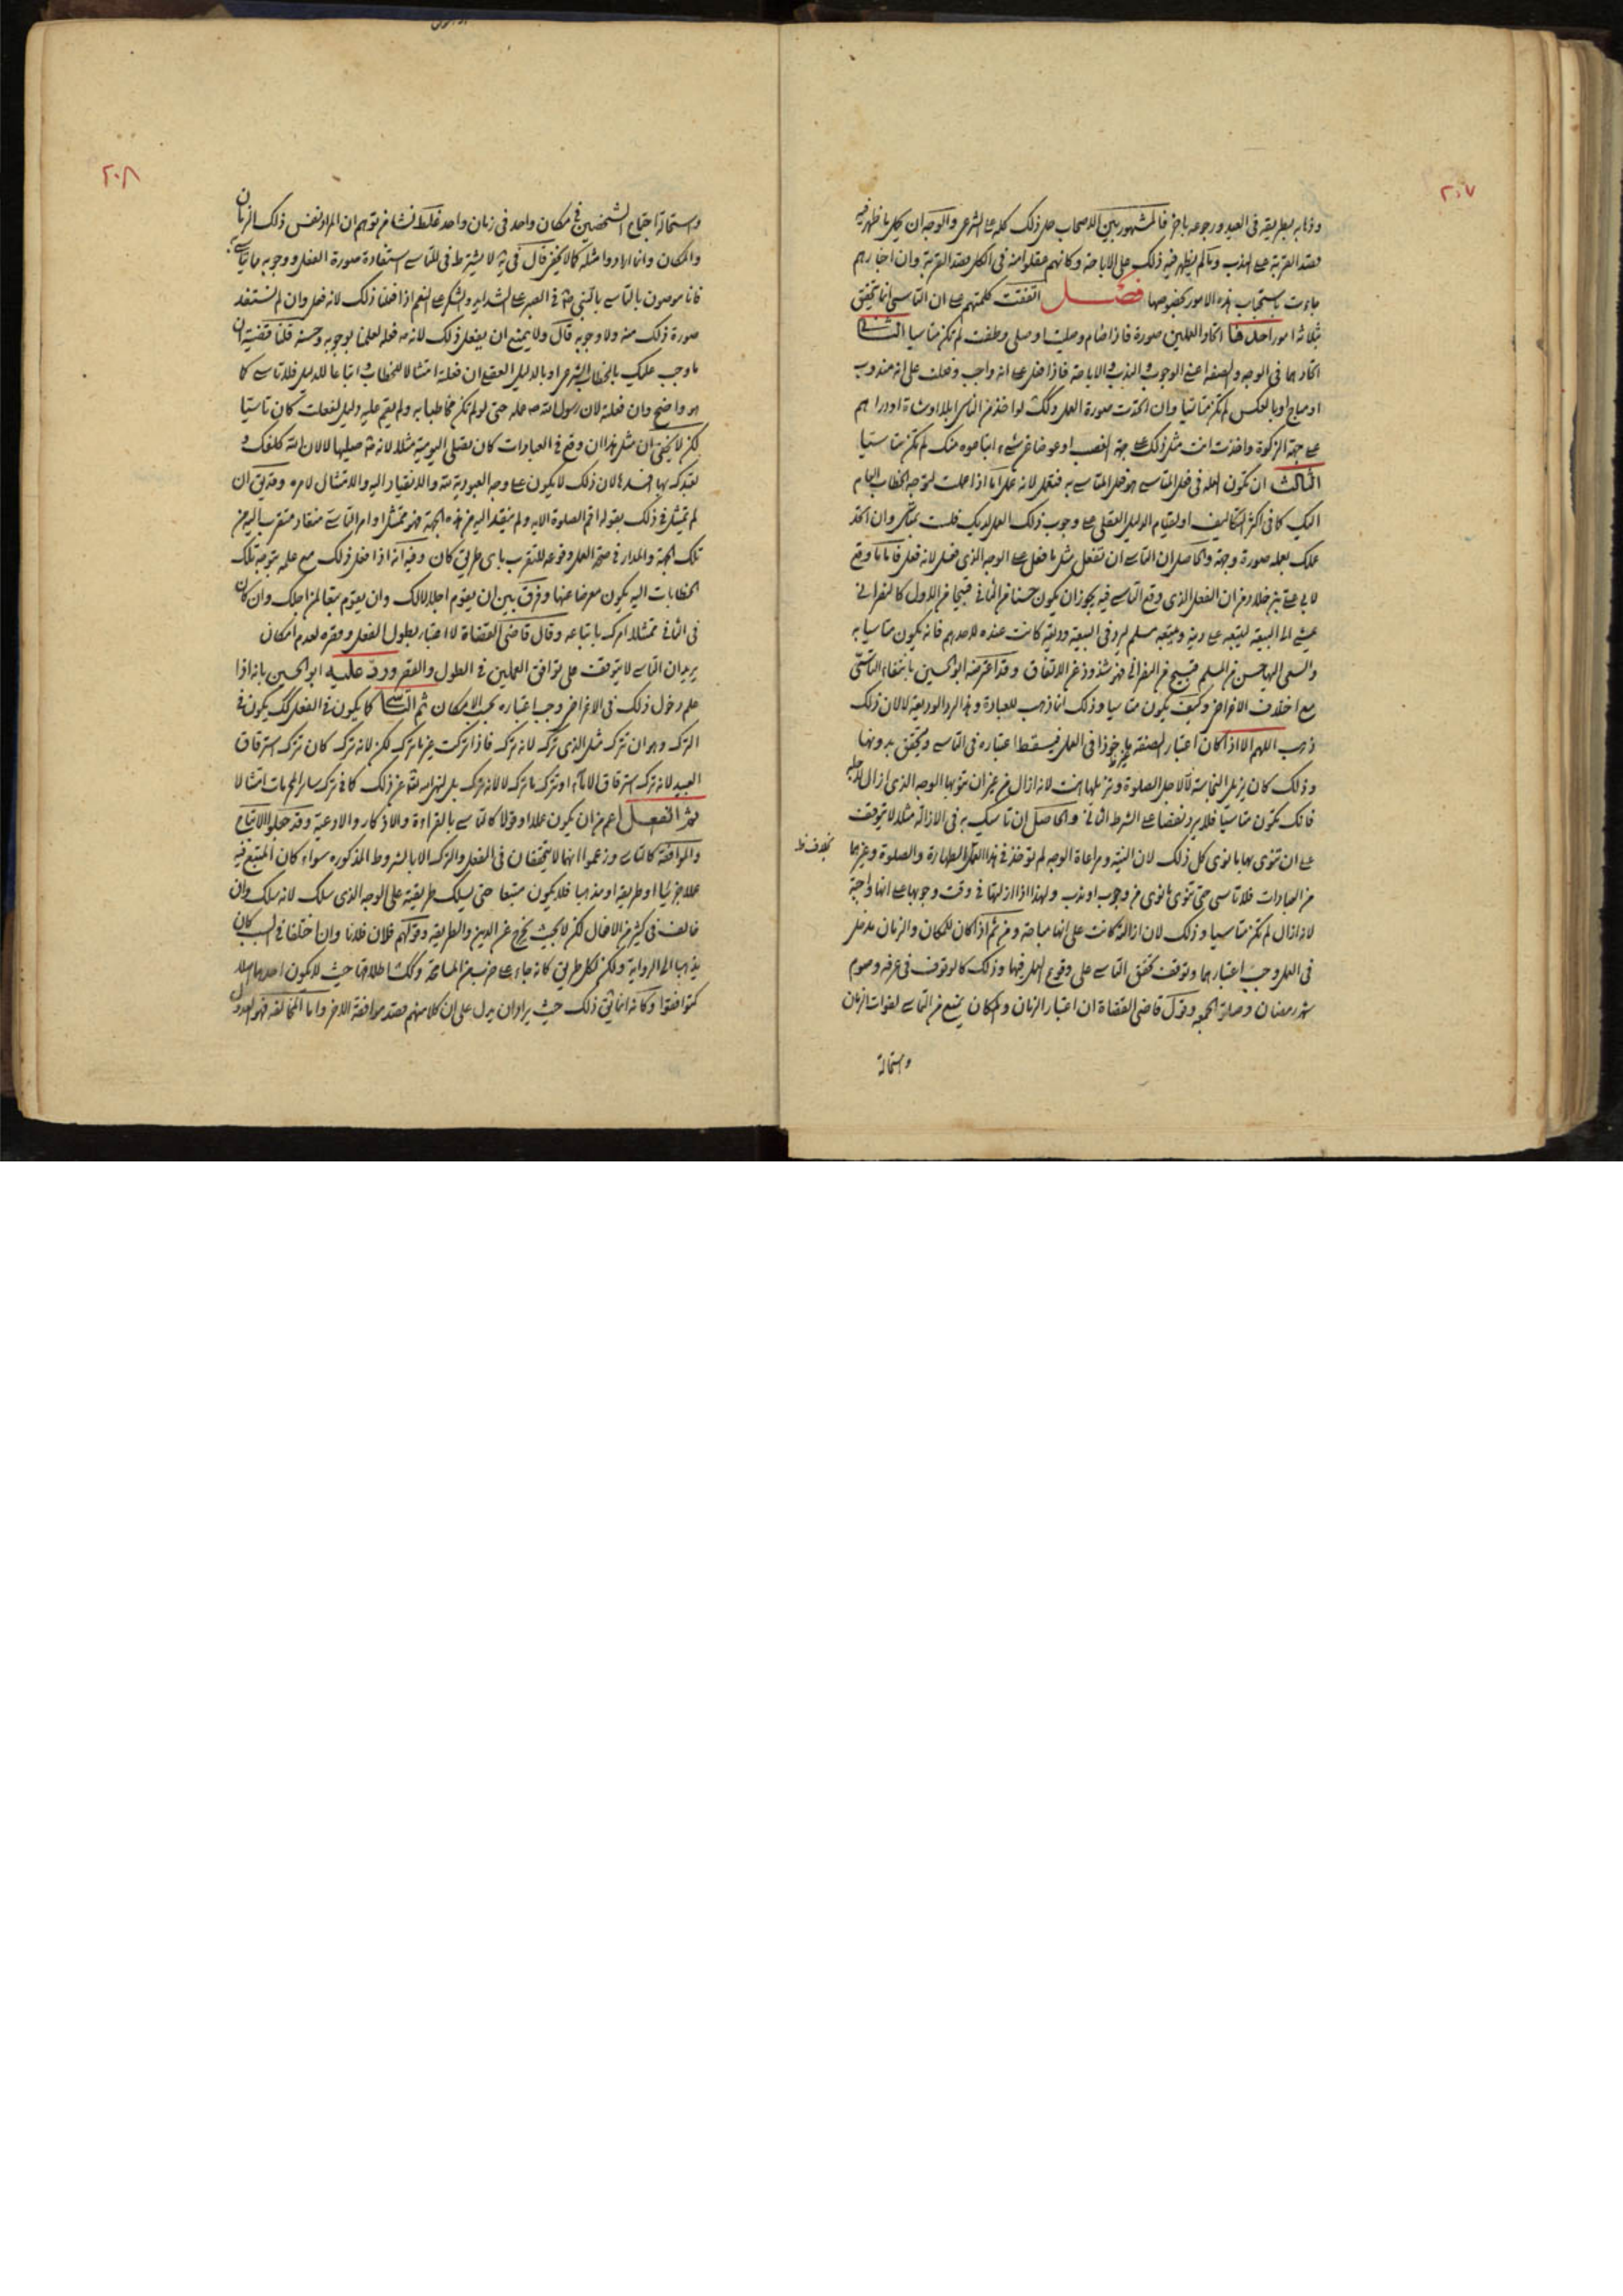 ٢٠٧
وذهابه بطريقه في العيد ورجوعه باخر فالمشهور بين الاصحاب حمل ذلك كله على الشرعي والوجه ان كل ما ظهر فيه
قصد القربة على الندب وما لم يظهر فيه ذلك على الاباحة وكانهم عقلوا منه في الكل قصد القربة وان اخبارهم
جاءت باستحباب هذه الامور بخصوصها فصل اتفقت كلمتهم على ان التاسي انما يتحقق
بثلاثة امور احدها اتحاد العملين صورة فاذا صام وصليت او صلى وطفت لم تكن متاسيا الثاني
اتحادهما في الوجه والصفة اعني الوجوب والندب والاباحة فاذا فعل على انه واجب وفعلت على انه مندوب
او مباح او بالعكس لم تكن متاسيا وان اتحدت صورة العمل وكك لو اخذ من الناس ابلا او شاة او دراهم
على جهة الزكوة واخذت انت مثل ذلك على جهة الغصب او عوضا عن شيء ابتاعوه منك لم تكن متاسيا
الثالث ان تكون العلة في فعل المتاسي هو فعل المتاسى به فتفعل لانه فعل اما اذا عملت لتوجه الخطاب العام
اليك كما في اكثر التكاليف او لقيام الدليل العقلي على وجوب ذلك العمل لديك فلست بمتاس وان اتحد
عملك بعمله صورة وجهة والحاصل ان التاسي ان تفعل مثل ما فعل على الوجه الذي فعل لانه فعل فاما ما وقع
لابي علي بن خلاد من ان الفعل الذي وقع التاسي فيه يجوز ان يكون حسنا من الثاني قبيحا من الاول كالنصراني
يمشي الى البيعة ليتعبد على دينه ويتبعه مسلم ليرد في البيعة وديعة كانت عنده لاحدهم فانه يكون متاسيا به
والسعي اليها حسن من المسلم قبيح من النصراني فهو شذوذ عن الاتفاق وقد اعترضه ابو الحسين بانتفاء التاسي
مع اختلاف الاغراض وكيف يكون متاسيا وذلك انما ذهب للعبادة وهذا لرد الوديعة لا لان ذلك
ذهب اللهم الا اذا كان اعتبار الصفة غير ماخوذا في العمل فيسقط اعتباره في التاسي ويتحقق بدونها
وذلك كان يزيل النجاسة لا لاجل الصلوة وتزيلها انت لانه ازال من غير ان تنوي بها الوجه الذي ازال لاجله
فانك تكون متاسيا فلا يرد نقضا على الشرط الثاني والحاصل ان تاسيك به في الازالة مثلا لا يتوقف
على ان تنوي بها ما نوى كل ذلك لان النية ومراعاة الوجه لم توخذ في هذا العمل بخلاف الطهارة والصلوة وغيرهما
من العبادات فلا تاسي حتى تنوي ما نوى من وجوب او ندب ولهذا اذا ازلتها في وقت وجوبها على انها واجبة
لانه ازال لم تكن متاسيا وذلك لان ازالته كانت على انها مباحة ومن ثم اذا كان للمكان والزمان مدخل
في العمل وجب اعتبارهما وتوقف تحقق التاسي على وقوع العمل فيها وذلك كالوقوف في عرفه وصوم
شهر رمضان وصلوة الجمعه وقول قاضي القضاة ان اعتبار الزمان والمكان يمنع من التاسي لفوات الزمان
واستحالة
٢٠٨
واستحالة اجتماع الشخصين في مكان واحد في زمان واحد غلط نشا من توهم ان المراد نفس ذلك الزمان
والمكان وانما ارادوا مثله كما لا يخفى قال في يه لا يشترط في التاسي استفادة صورة الفعل ووجوبه مما يتاسى به
فانا موصون بالتاسي بالنبي ص في الصبر على الشدايد والشكر على النعم اذا فعلنا ذلك لانه فعل وان لم نستفد
صورة ذلك منه ولا وجوبه قال ولا يمتنع ان يفعل ذلك لانه ص فعله لعلمنا بوجوبه وحسنه قلنا قضية ان
ما وجب عليك بالخطاب الشرعي او بالدليل العقلي ان فعلته امتثالا للخطاب او اتباعا للدليل فلا تاسي كما
هو واضح وان فعلته لان رسول الله ص فعله حتى لو لم تكن مخاطبا به ولم يقم عليه دليل لفعلت كان تاسيا
لكن لا يخفى ان مثل هذا ان وقع في العبادات كان يصلي اليومية مثلا لانه ص صليها لا لان الله كلفك و
تعبدك بها افسدها لان ذلك لا يكون على وجه العبودية منه والانقياد اليه والامتثال لامره وقد يق ان
لم تمتثل في ذلك بقوله اقم الصلوة الاية ولم ينقد اليه من هذه الجهة فهو ممتثل اوامر التاسي منقاد متقرب اليه من
تلك الجهة والمدار في صحة العمل وقوعه للتقرب باي طريق كان وفيه انه اذا فعل ذلك مع علمه بتوجه تلك
الخطابات اليه يكون معرضا عنها وفرق بين ان يقوم اجلالا لك وان يقوم تبعا لمن اجلك وان كان
في الثاني ممتثلا امرك باتباعه وقال قاضي القضاة لا اعتبار بطول الفعل وقصره لعدم امكان
يريد ان التاسي لا يتوقف على توافق العملين في الطول والقصر ورد عليه ابو الحسين بانه اذا
علم دخول ذلك في الاغراض وجب اعتباره بحسب الامكان ثم التاسي كما يكون في الفعل كك يكون في
الترك وهو ان تترك مثل الذي ترك لانه ترك فاذا تركت غير ما ترك لكن لانه ترك كان تترك استرقاق
العبيد لانه ترك استرقاق الاماء او تترك ما ترك لا لانه ترك بل لنهي الله تعه عن ذلك كما في ترك سائر المحرمات امتثالا
ثم الفعل اعم من ان يكون عملا او قولا كالتاسي بالقراءة والاذكار والادعية وقد جعلوا الاتباع
والموافقة كالتاسي وزعموا انهما لا يتحققان في الفعل والترك الا بالشروط المذكوره سواء كان المتبع فيه
عملا جزئيا او طريقة او مذهبا فلا يكون متبعا حتى يسلك طريقته على الوجه الذي سلك لانه سلك وان
خالف في كثير من الافعال لكن لا بحيث يخرج عن الدين والطريقه وقولهم فلان فلانا وان اختلفا في السبب كان
يذهبا الى الرواية ولكن لكل طريق كانه جاء على ضرب من المسامحة وكك اطلاقها حيث لا يكون احدهما
كتوافقوا وكانه انما يتم ذلك حيث يراد ان يدل على ان كلا منهم قصد موافقة الاخر واما المخالفة فهو العدول